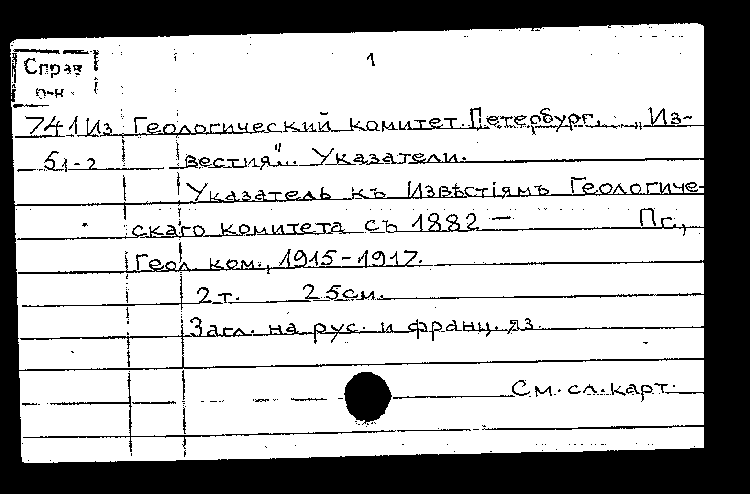 1
Справ
о-н
741 Из Геологический комитет. Петербург. „Из-
51-2 вестия"... Указатели.
Указатель къ Извѣстіямъ Геологиче-
скаго комитета съ 1882 – Пг.,
Геол. ком., 1915-1917.
2 т. 25 см.
Загл. на рус. и франц. яз.
См. сл. карт.